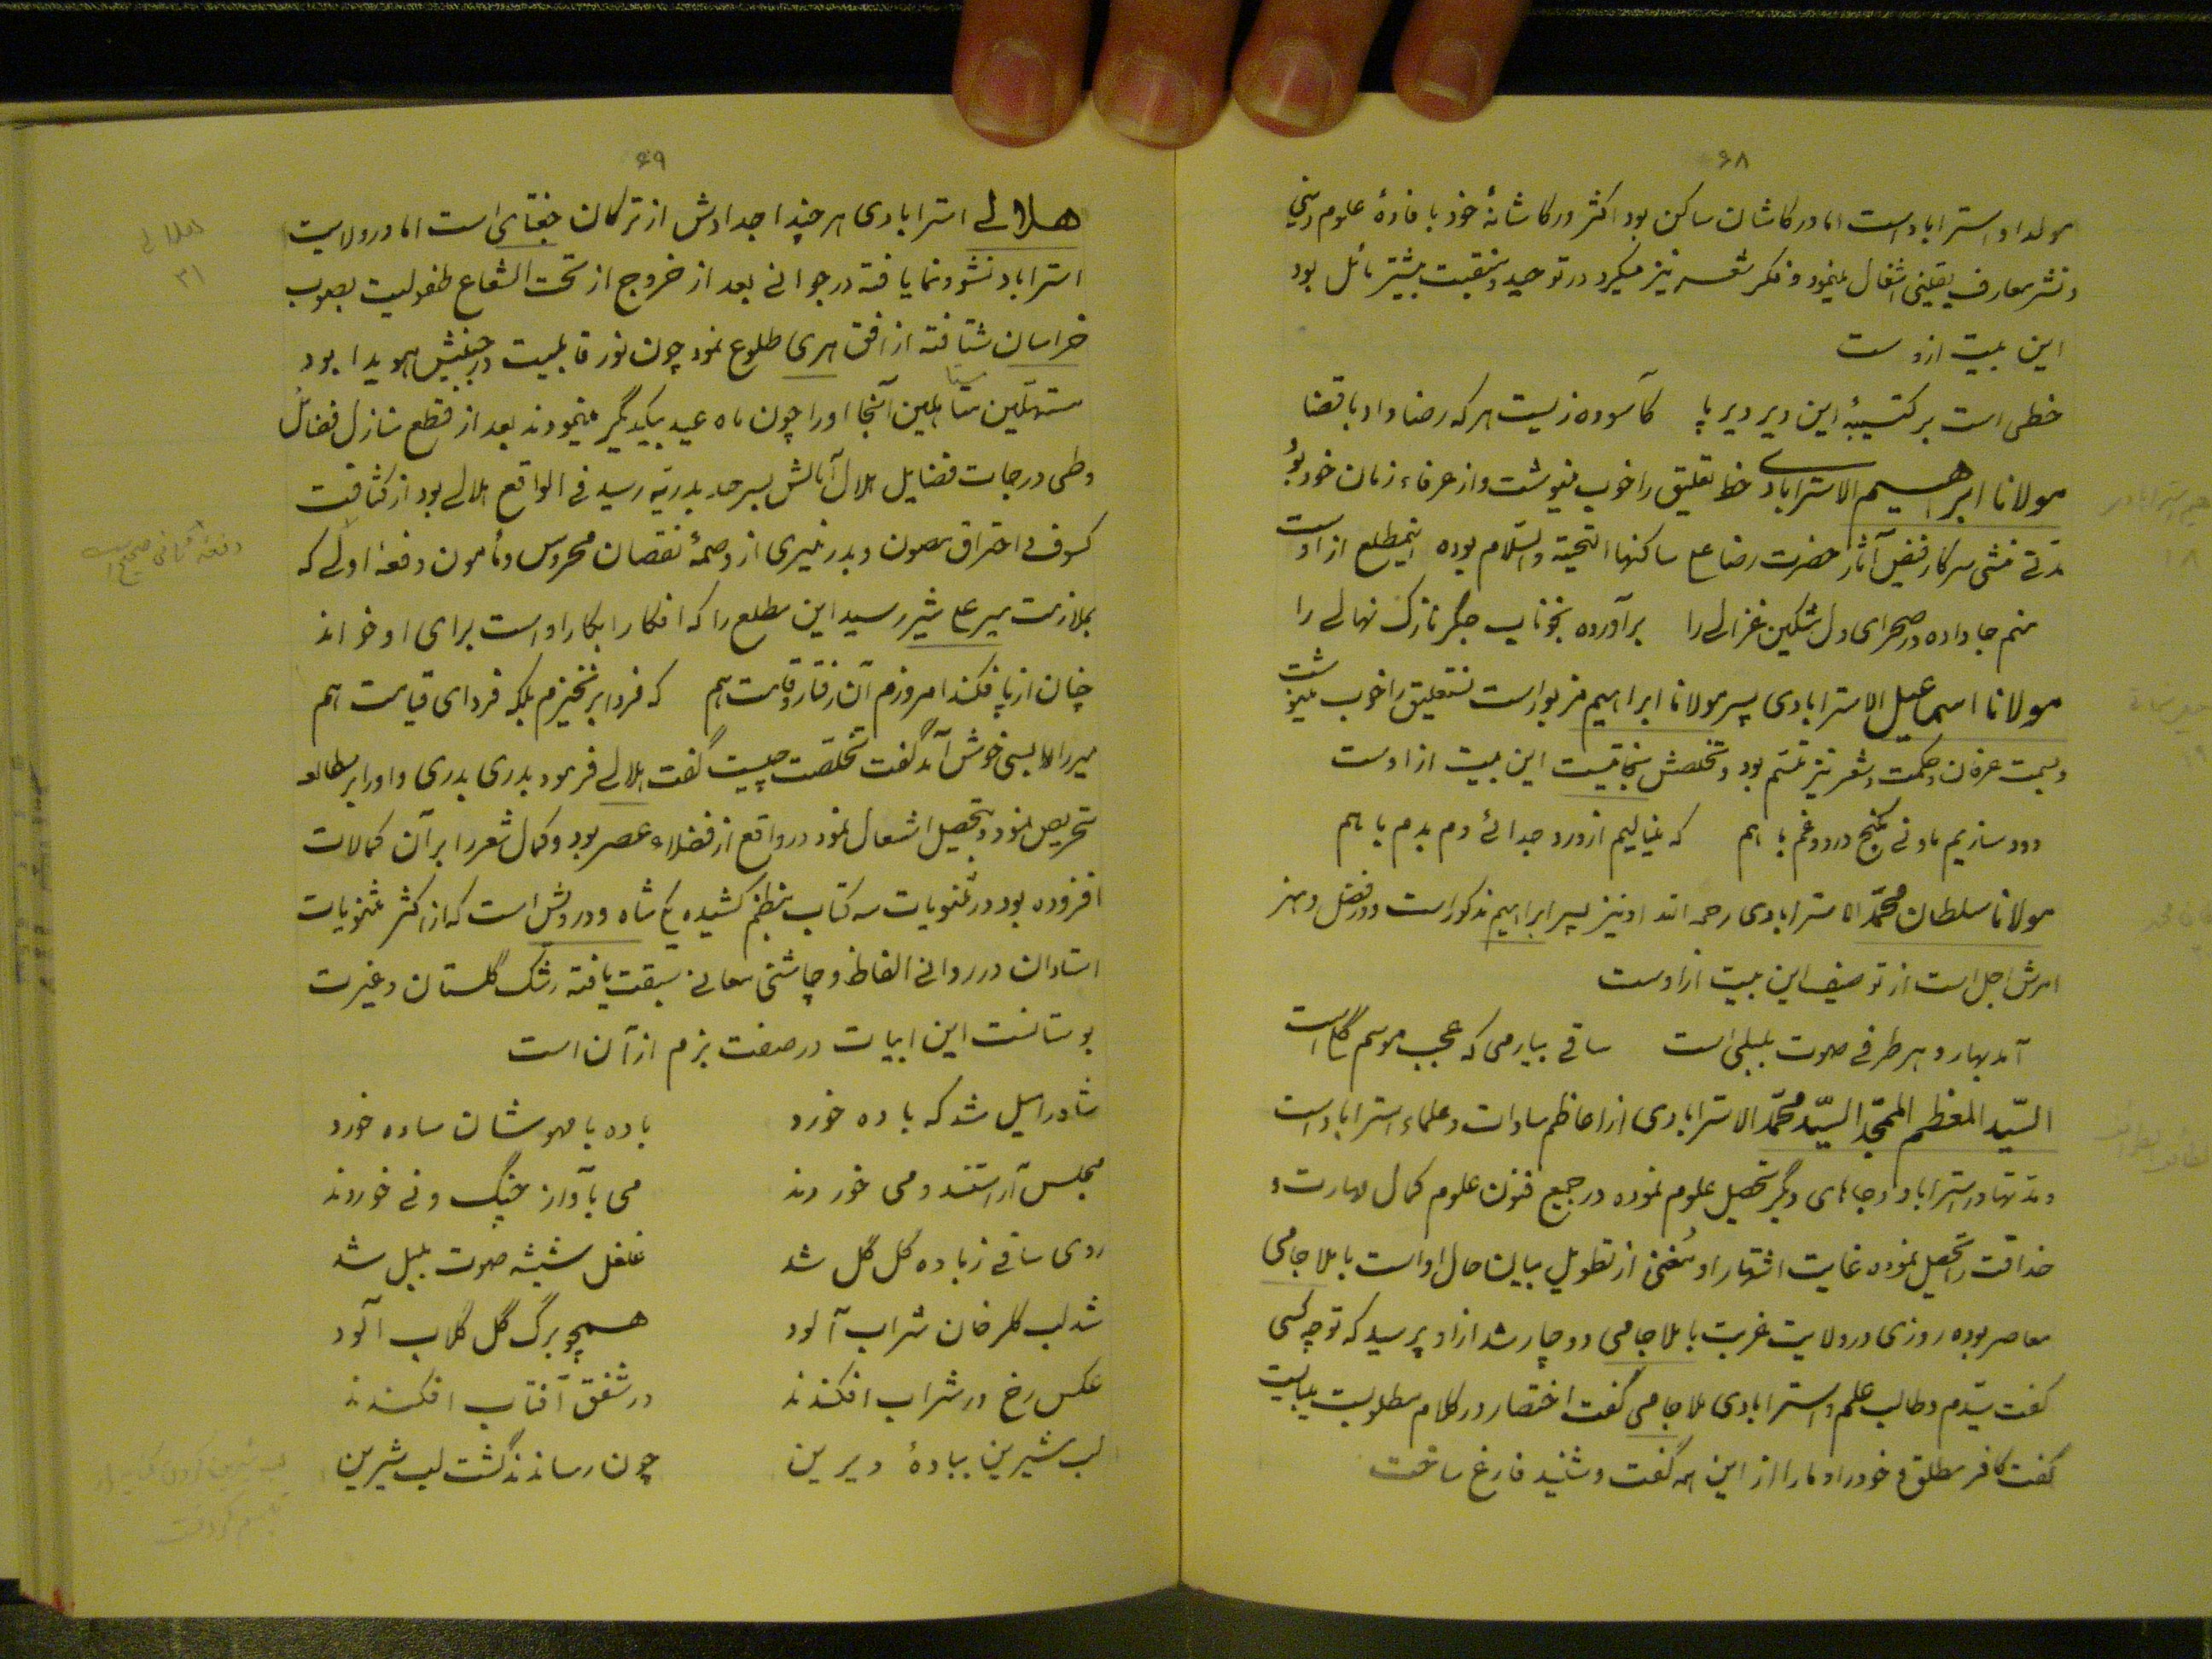 ۶۸
مولد او استراباد است اما در کاشان ساکن بود اکثر در کاشانهٔ خود بافادهٔ علوم دینی
و نشر معارف یقینی اشغال مینمود و فکر شعر نیز میکرد در توحید و منقبت بیشتر مائل بود
این بیت ازوست
خطی است بر کتیبهٔ این دیر دیر پا کآسوده زیست هر که رضا داد با قضا
مولانا ابراهیم الاسترابادی خط تعلیق را خوب مینوشت و از عرفاء زمان خود بود
مدتی منشی سرکار فیض آثار حضرت رضا علی ساکنها التحیة والسلام بوده این مطلع از اوست
منم جا داده در صحرای دل مشکین غزالی را برآورده بخوناب جگر نازک نهالی را
مولانا اسماعیل الاسترابادی پسر مولانا ابراهیم مزبور است نستعلیق را خوب مینوشت
و بسمت عرفان و حکمت و شعر نیز متسم بود و تخلصش نجاتیست این بیت از اوست
دود سازیم ما و نی بکنج درد و غم با هم که مینالیم از درد جدائی دم بدم با هم
مولانا سلطان محمد الاسترابادی رحمه الله او نیز پسر ابراهیم مذکور است و در فضل و هنر
امرش اجل است از توصیف این بیت از اوست
آمد بهار و هر طرفی صوت بلبلی است ساقی بیار می که عجب موسم گل است
السّید المعظم الممجّد السیّد محمّد الاسترابادی از اعاظم سادات و علماء استراباد است
و مدتها در استراباد و جاهای دیگر تحصیل علوم نموده در جمیع فنون علوم کمال مهارت و
حذاقت را تحصیل نموده غایت اشتهار او مُغنی از تطویل بیان حال او است با ملا جامی
معاصر بوده روزی در ولایت غربت با ملا جامی دو چار شد از او پرسید که تو چه کسی
گفت سیّدم و طالب علم و استرابادی ملا جامی گفت اختصار در کلام مطلوبست میبایست
گفت کافر مطلق و خود را و ما را از این همه گفت و شنید فارغ ساخت
۶۹
هلالی استرابادی هر چند اجدادش از ترکمان جغتای است اما در ولایت
استراباد نشو و نما یافته در جوانی بعد از خروج از تحت الشعاع طفولیت بصوب
خراسان شتافته از افق هری طلوع نمود چون نور قابلیت در جبینش هویدا بود
مستهلین متأهلین آنجا او را چون ماه عید بیکدیگر مینمودند بعد از قطع منازل فضائل
و طی درجات فضایل هلال آمالش بسر حد بدریّه رسید فی الواقع هلالی بود از کثافت
کسوف و احتراق مصون و بدر منیری از وصمهٔ نقصان محروس و مأمون دفعهٔ اولی که
بملازمت میر علی شیر رسید این مطلع را که افکار ابکار او است برای او خواند
چنان از پا فکند امروزم آن رفتار و قامت هم که فردا بر نخیزم بلکه فردای قیامت هم
میر را بسی خوش آمد گفت تخلصت چیست گفت هلالی فرمود بدری بدری و او را بر مطالعه
تحریص نمود و بتحصیل اشتغال نمود در واقع از فضلاء عصر بود و کمال شعر را بر آن کمالات
افزوده بود در مثنویات سه کتاب بنظم کشیده یکی شاه و درویش است که از اکثر مثنویات
استادان در روانی الفاظ و چاشنی معانی سبقت یافته رشک گلستان و غیرت
بوستانست این ابیات در صفت بزم از آن است
شاد را میل شد که باده خورد باده با مهوشان ساده خورد
مجلس آراستند و می خوردند می بآواز چنگ و نی خوردند
روی ساقی ز باده گل گل شد غلغل شیشه صوت بلبل شد
شد لب گلرخان شراب آلود همچو برگ گل گلاب آلود
عکس رخ در شراب افکندند در شفق آفتاب افکندند
لب شیرین ببادهٔ دیرین چون رساندند گشت لب شیرین
هلالی
۳۱
دفعهٔ ثانی صحیح است